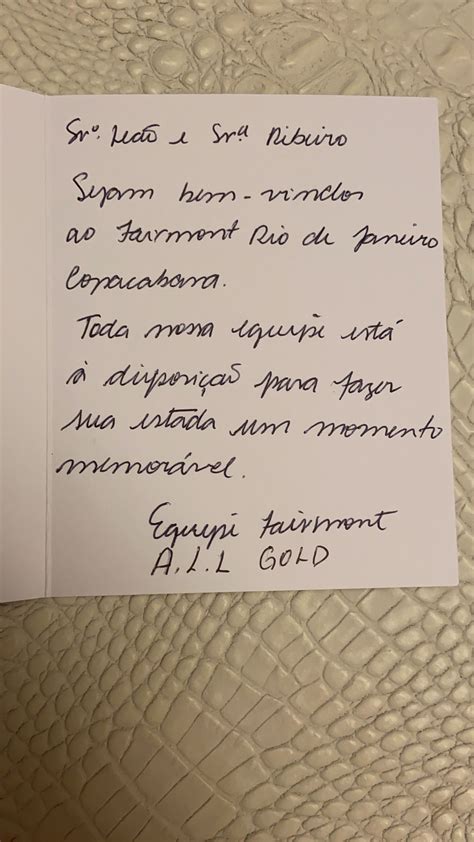 Srº. Leão e Srª Ribeiro
Sejam bem-vindos
ao Fairmont Rio de Janeiro
Copacabana.
Toda nossa equipe está
à disposição para fazer
sua estada um momento
memorável.
Equipe Fairmont
A.L.L GOLD